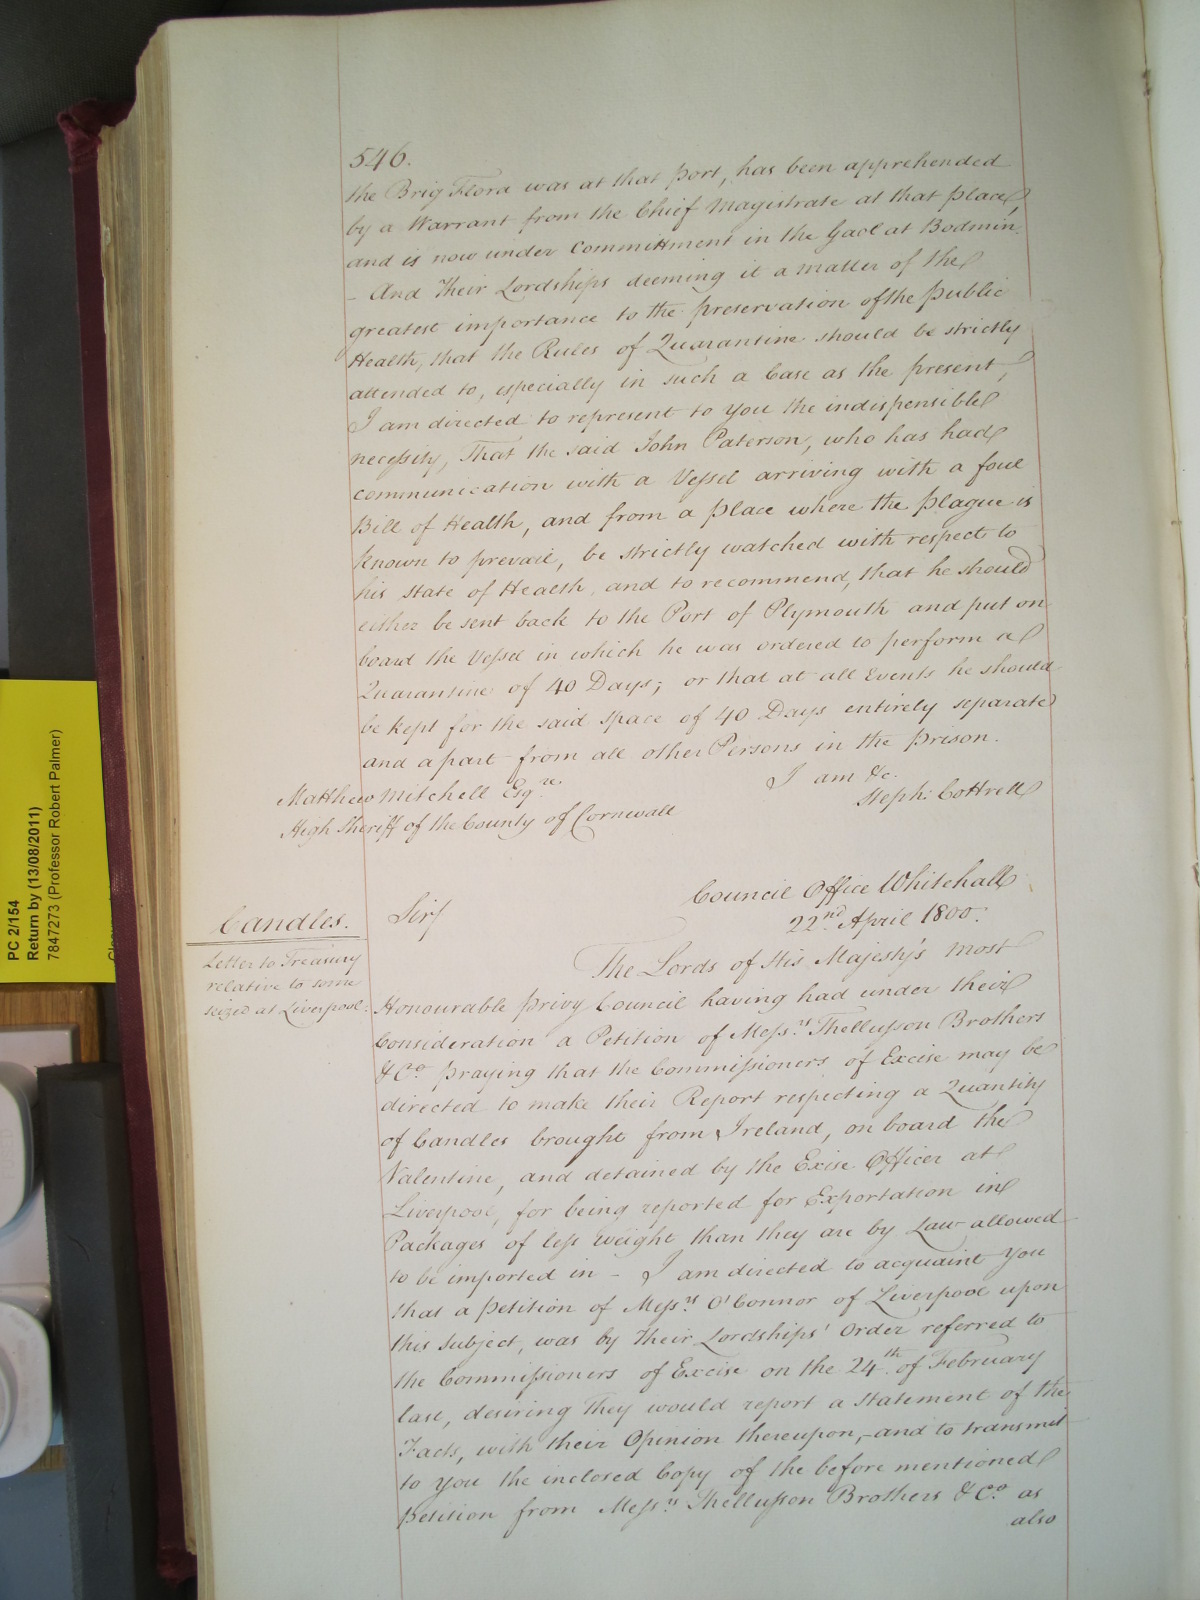 546.
the Brig Flora was at that port, has been apprehended
by a Warrant from the Chief Magistrate at that place,
and is now under Committment in the Gaol at Bodmin.
- And Their Lordships deeming it a matter of the
greatest importance to the preservation of the public
Health, that the Rules of Quarantine should be strictly
attended to, especially in such a Case as the present,
I am directed to represent to you the indispensible
necessity, That the said John Paterson, who has had
communication with a Vessel arriving with a foul
Bill of Health, and from a place where the plague is
known to prevail, be strictly watched with respect to
his State of Health, and to recommend, that he should
either be sent back to the Port of Plymouth and put on
board the Vessel in which he was ordered to perform a
Quarantine of 40 Days; or that at all Events he should
be kept for the said space of 40 Days entirely separate
and apart from all other Persons in the prison.
I am &c.
Steph: Cottrell
Matthew Mitchell Esqre.
High Sheriff of the County of Cornwall
Council Office Whitehall
22nd. April 1800.
Candles.
Letter to Treasury
relative to some
seized at Liverpool:
Sir/
The Lords of His Majesty's most
Honourable Privy Council having had under their
Consideration a Petition of Messrs Thellusson Brothers
& Co. praying that the Commissioners of Excise may be
directed to make their Report respecting a Quantity
of Candles brought from Ireland, on board the
Valentine, and detained by the Excise Officer at
Liverpool, for being reported for Exportation in
Packages of less weight than they are by Law allowed
to be imported in - I am directed to acquaint you
that a petition of Messrs O'Connor of Liverpool upon
this Subject, was by Their Lordships' Order referred to
the Commissioners of Excise on the 24th. of February
last, desiring They would report a Statement of the
Facts, with their Opinion thereupon,-and to transmit
to you the inclosed Copy of the before mentioned
petition from Messrs Thellusson Brothers & Co. as
also
PC 2/154
Return by (13/08/2011)
7847273 (Professor Robert Palmer)